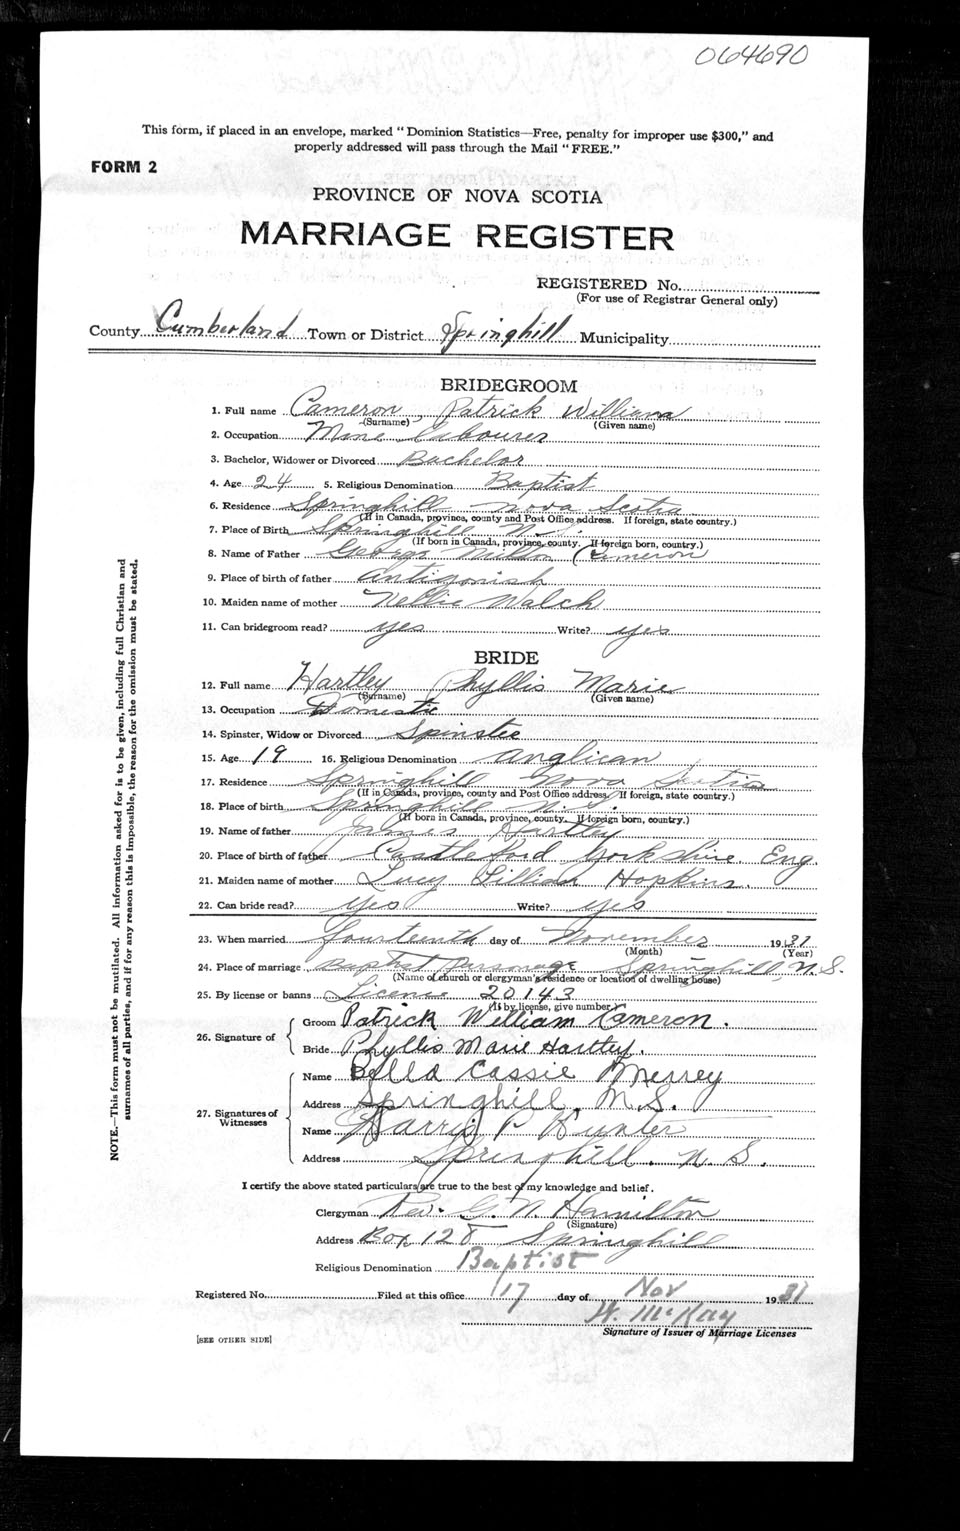 064690
This form, if placed in an envelope, marked "Dominion Statistics—Free, penalty for improper use $300," and
properly addressed will pass through the Mail "FREE."
FORM 2
PROVINCE OF NOVA SCOTIA
MARRIAGE REGISTER
REGISTERED No.
(For use of Registrar General only)
County Cumberland Town or District Springhill Municipality
BRIDEGROOM
1. Full name Cameron Patrick William
(Surname) (Given name)
2. Occupation Mine Labourer
3. Bachelor, Widower or Divorced Bachelor
4. Age 24 5. Religious Denomination Baptist
6. Residence Springhill Nova Scotia
(If in Canada, province, county and Post Office address. If foreign, state country.)
7. Place of Birth Springhill N.S.
(If born in Canada, province, county. If foreign born, country.)
8. Name of Father George Cameron
9. Place of birth of father Antigonish
10. Maiden name of mother Nellie Walch
11. Can bridegroom read? yes Write? yes
BRIDE
12. Full name Hartley Phyllis Marie
(Surname) (Given name)
13. Occupation Domestic
14. Spinster, Widow or Divorced Spinster
15. Age 19 16. Religious Denomination Anglican
17. Residence Springhill Nova Scotia
(If in Canada, province, county and Post Office address. If foreign, state country.)
18. Place of birth Springhill N.S.
(If born in Canada, province, county. If foreign born, country.)
19. Name of father James Hartley
20. Place of birth of father Castleford Yorkshire Eng.
21. Maiden name of mother Lucy Lillian Hopkins.
22. Can bride read? yes Write? yes
23. When married fourteenth day of November 1931
(Month) (Year)
24. Place of marriage Baptist Parsonage Springhill N.S.
(Name of church or clergyman's residence or location of dwelling house)
25. By license or banns License 20143
(If by license, give number)
26. Signature of
Groom Patrick William Cameron.
Bride Phyllis Marie Hartley.
27. Signatures of Witnesses
Name Bella Cassie Merrey
Address Springhill, N.S.
Name Harris Hunter
Address Springhill. N.S.
I certify the above stated particulars are true to the best of my knowledge and belief.
Clergyman Rev. G. N. Hamilton
(Signature)
Address Box 128 Springhill
Religious Denomination Baptist
Registered No. Filed at this office 17 day of Nov 1931
W. McKay
Signature of Issuer of Marriage Licenses
[SEE OTHER SIDE]
NOTE.—This form must not be mutilated. All information asked for is to be given, including full Christian and
surnames of all parties, and if for any reason this is impossible, the reason for the omission must be stated.